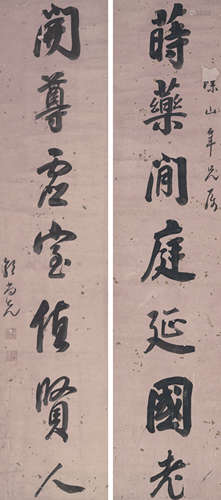 蒔藥閒庭延國老
味山年兄屬
開尊虛室值賢人
郭尚先